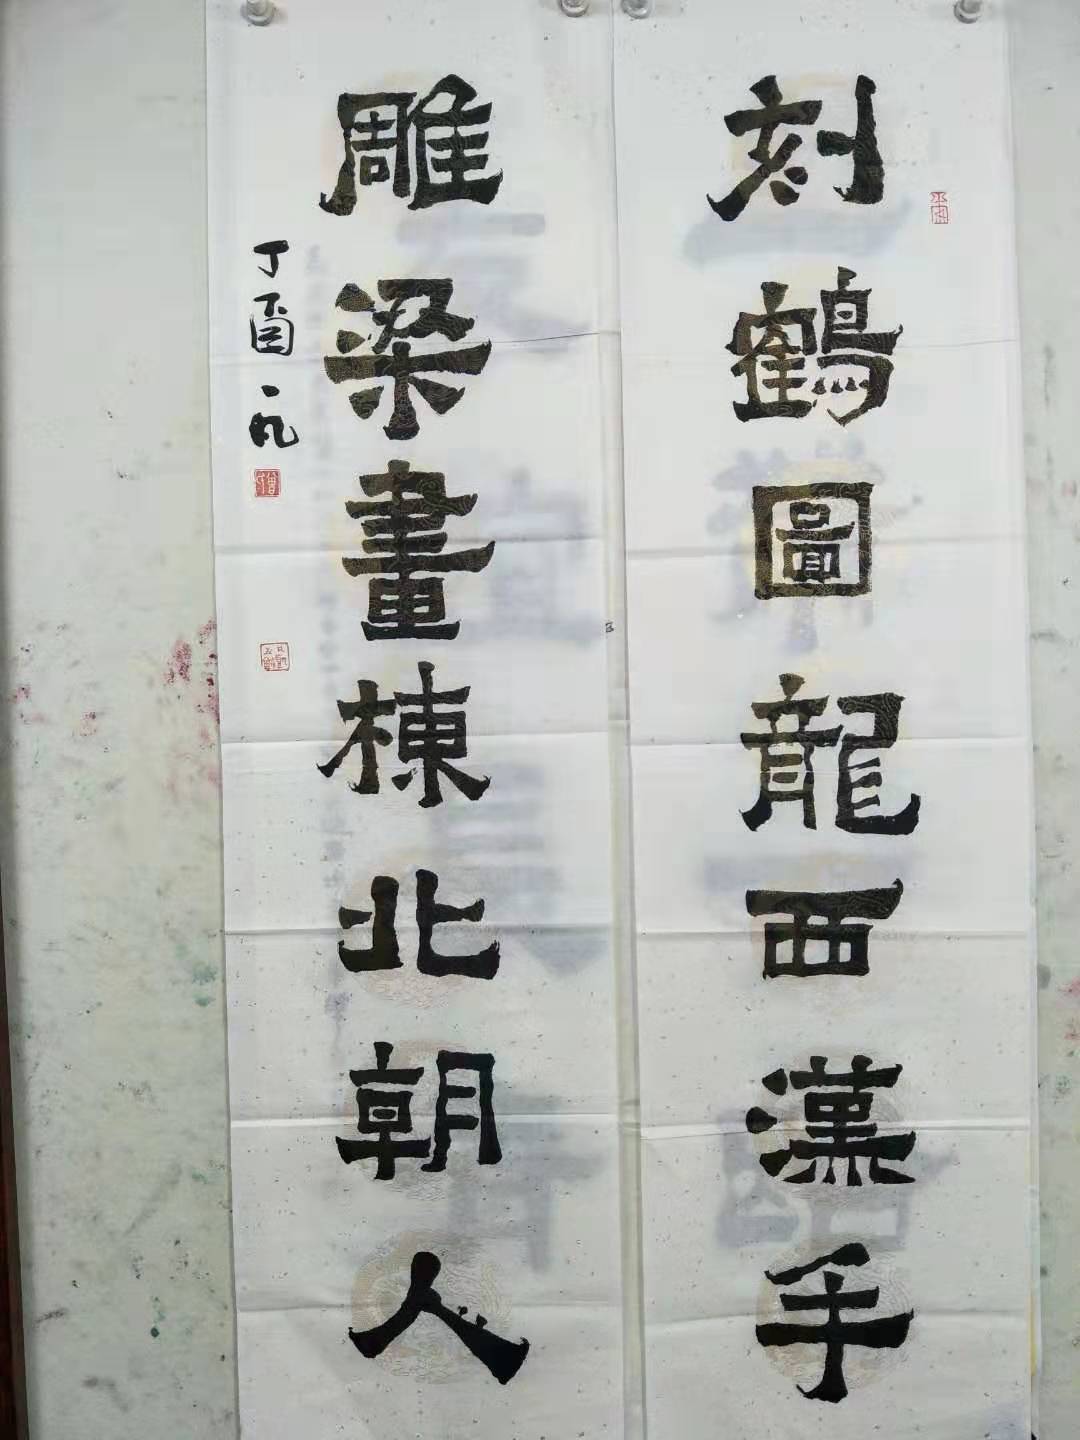 刻鶴圖龍西漢手
雕梁畫棟北朝人
丁酉 一凡